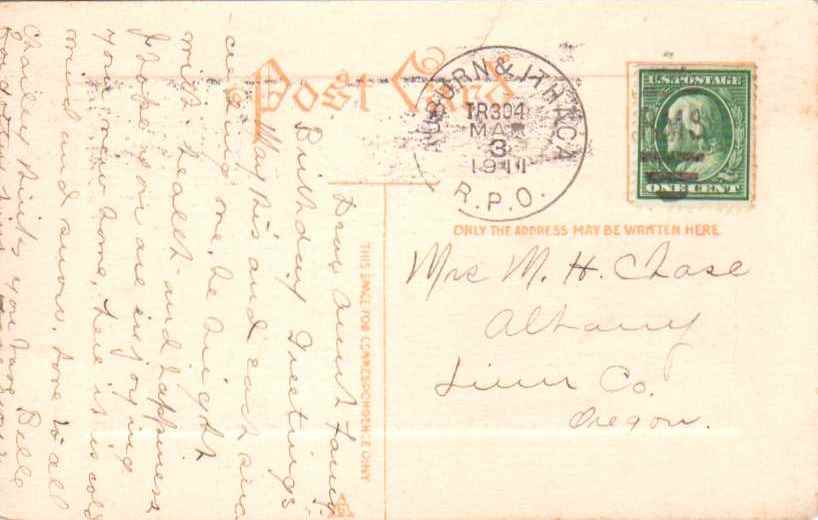 Post Card
AUBURN & ITHACA
TR304
MAR
3
1911
R.P.O.
U.S. POSTAGE
RMS
ONE CENT
ONLY THE ADDRESS MAY BE WRITTEN HERE
THIS SPACE FOR CORRESPONDENCE ONLY
Mrs M. H. Chase
Albany
Linn Co.
Oregon.
Dear Aunt
Birthday Greetings
May this and each
ceeding one, be bright
with health and happiness
I hope you are enjoying
your new home, here it is cold
wind and snow. Love to all
Belle
Charley thinks you have